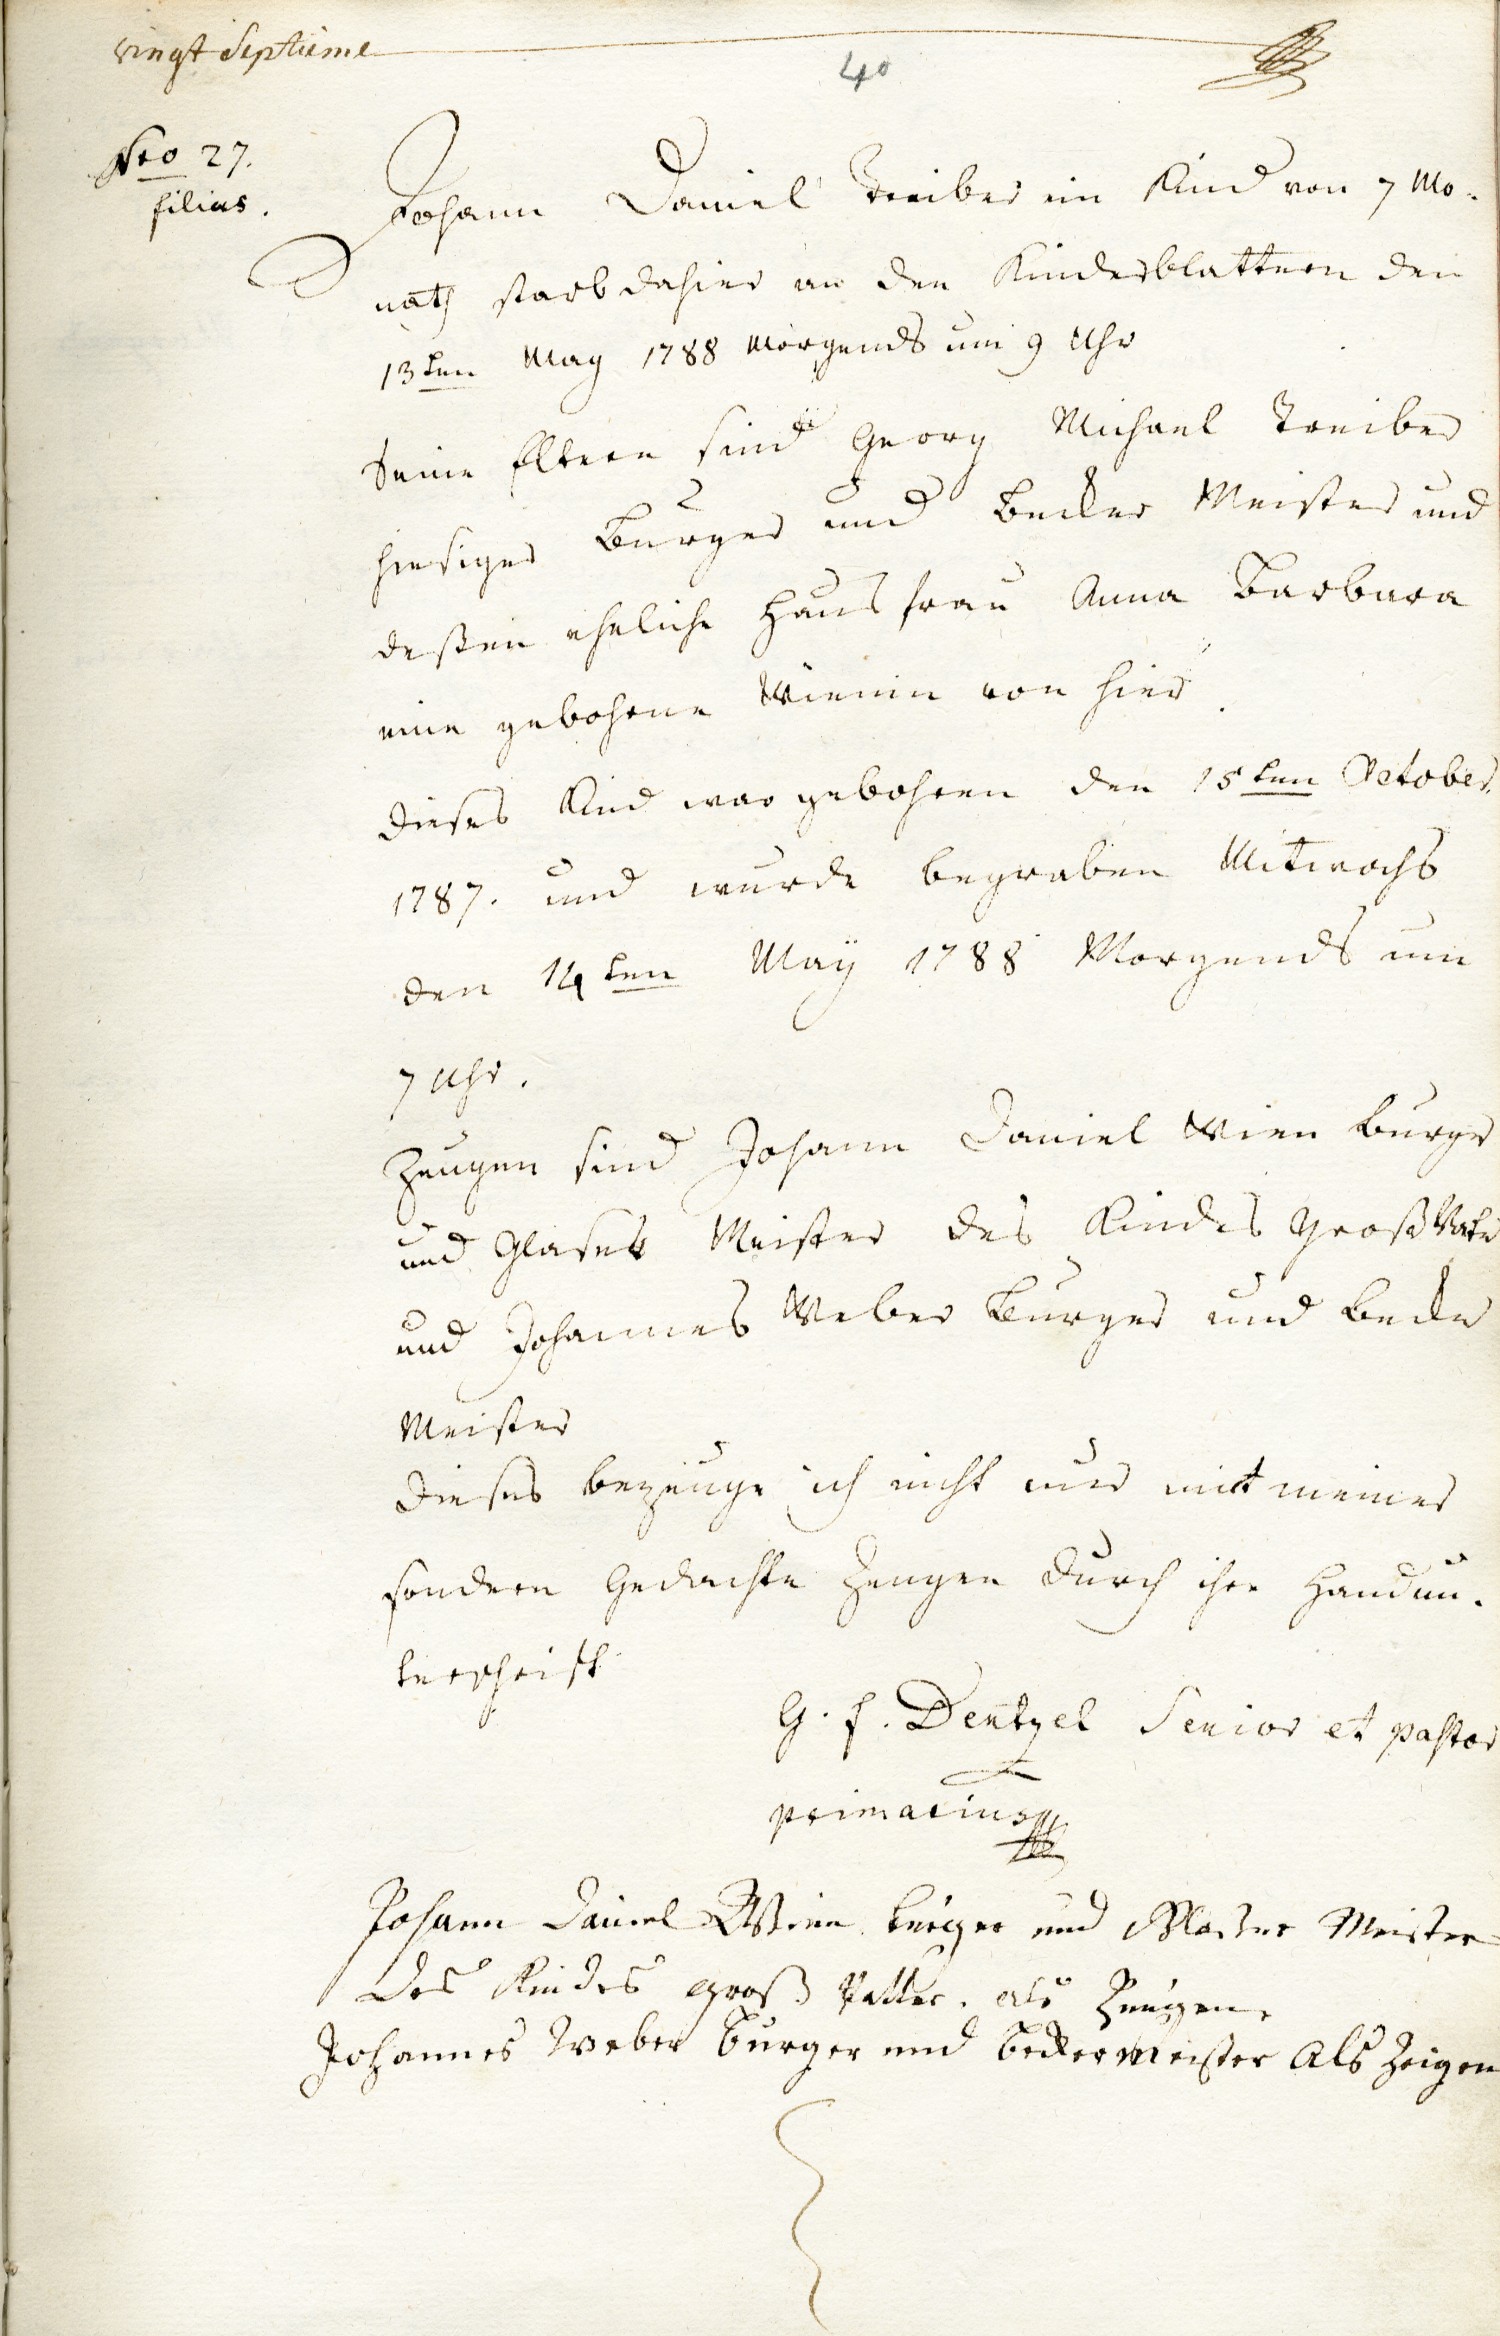 vingt Septieme
40
Nro 27.
filius.
Johann Daniel Treiber ein Kind von 7 Mo-
nath starb dahier an den Kinderblattern den
13ten May 1788 Morgends um 9 Uhr
Seine Eltern sind Georg Michael Treiber
hiesiger Burger und Becker Meister und
deßen eheliche Hausfrau Anna Barbara
eine gebohrne Wienin von hier.
dieses Kind war gebohren den 15ten October
1787. und wurde begraben Mitwochs
den 14ten Maÿ 1788 Morgends um
7 Uhr.
Zeugen sind Johann Daniel Wien Burger
und Glaser Meister des Kindes Groß Vater
und Johannes Weber Burger und Becker
Meister
dieses bezeuge ich nicht nur mit meiner
sondern Gedachte Zeugen durch ihre Handun-
terschrift
G. F. Dentzel Senior et pastor
primarius
Johann Daniel Wien burger und Glaser Meister
des Kindes groß Vatter. als Zeugen.
Johannes Weber burger und beckermeister Als Zeigen